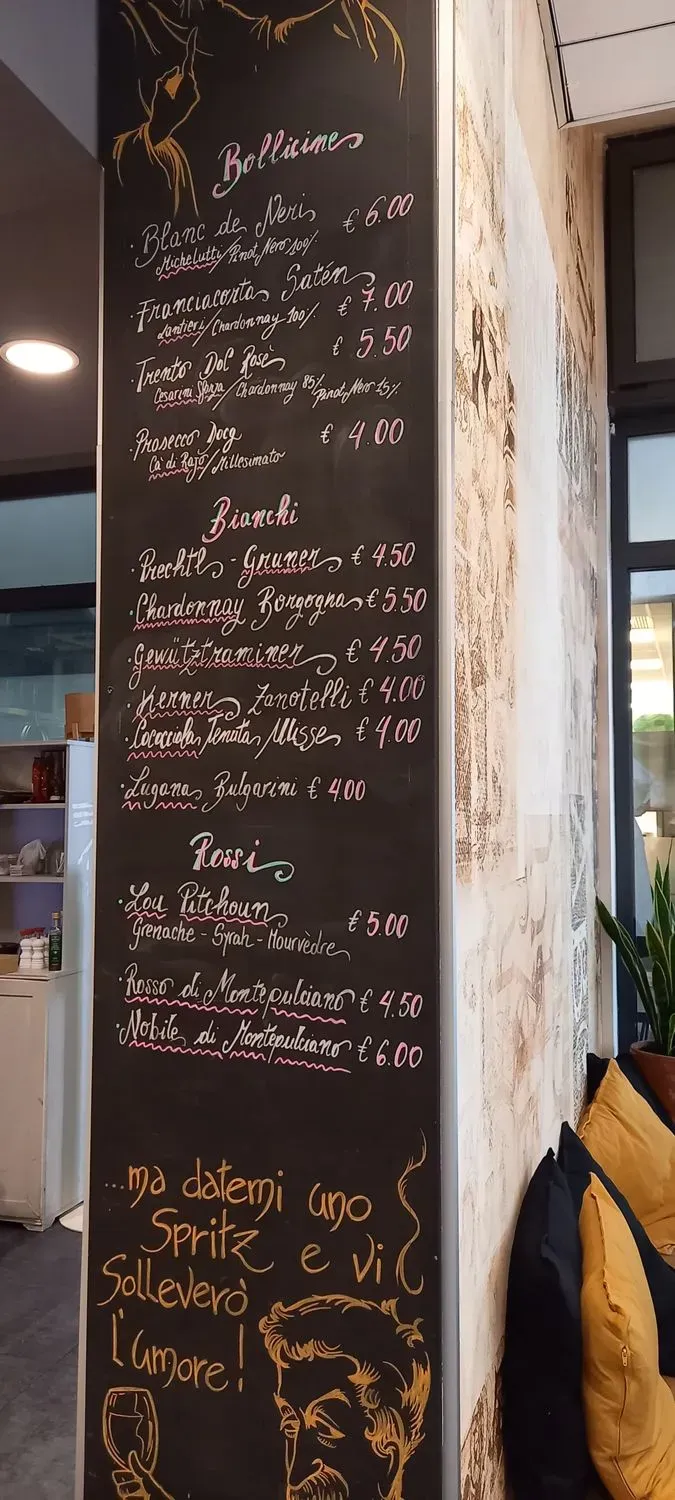 Bollicine
· Blanc de Neri € 6.00
Michelutti/Pinot Nero 100%
· Franciacorta Satén € 7.00
Lantieri/Chardonnay 100%
· Trento Doc Rosè € 5.50
Cesarini Sforza/Chardonnay 85% Pinot Nero 15%
· Prosecco Docg € 4.00
Ca' di Rajo/Millesimato
Bianchi
· Prechtl - Gruner € 4.50
· Chardonnay Borgogna € 5.50
· Gewütztraminer € 4.50
· Kerner Zanotelli € 4.00
· Cococciola Tenuta Ulisse € 4.00
· Lugana Bulgarini € 4.00
Rossi
· Lou Pitchoun € 5.00
Grenache - Syrah - Mourvèdre
· Rosso di Montepulciano € 4.50
· Nobile di Montepulciano € 6.00
...ma datemi uno
Spritz e vi
Solleverò
l'umore!